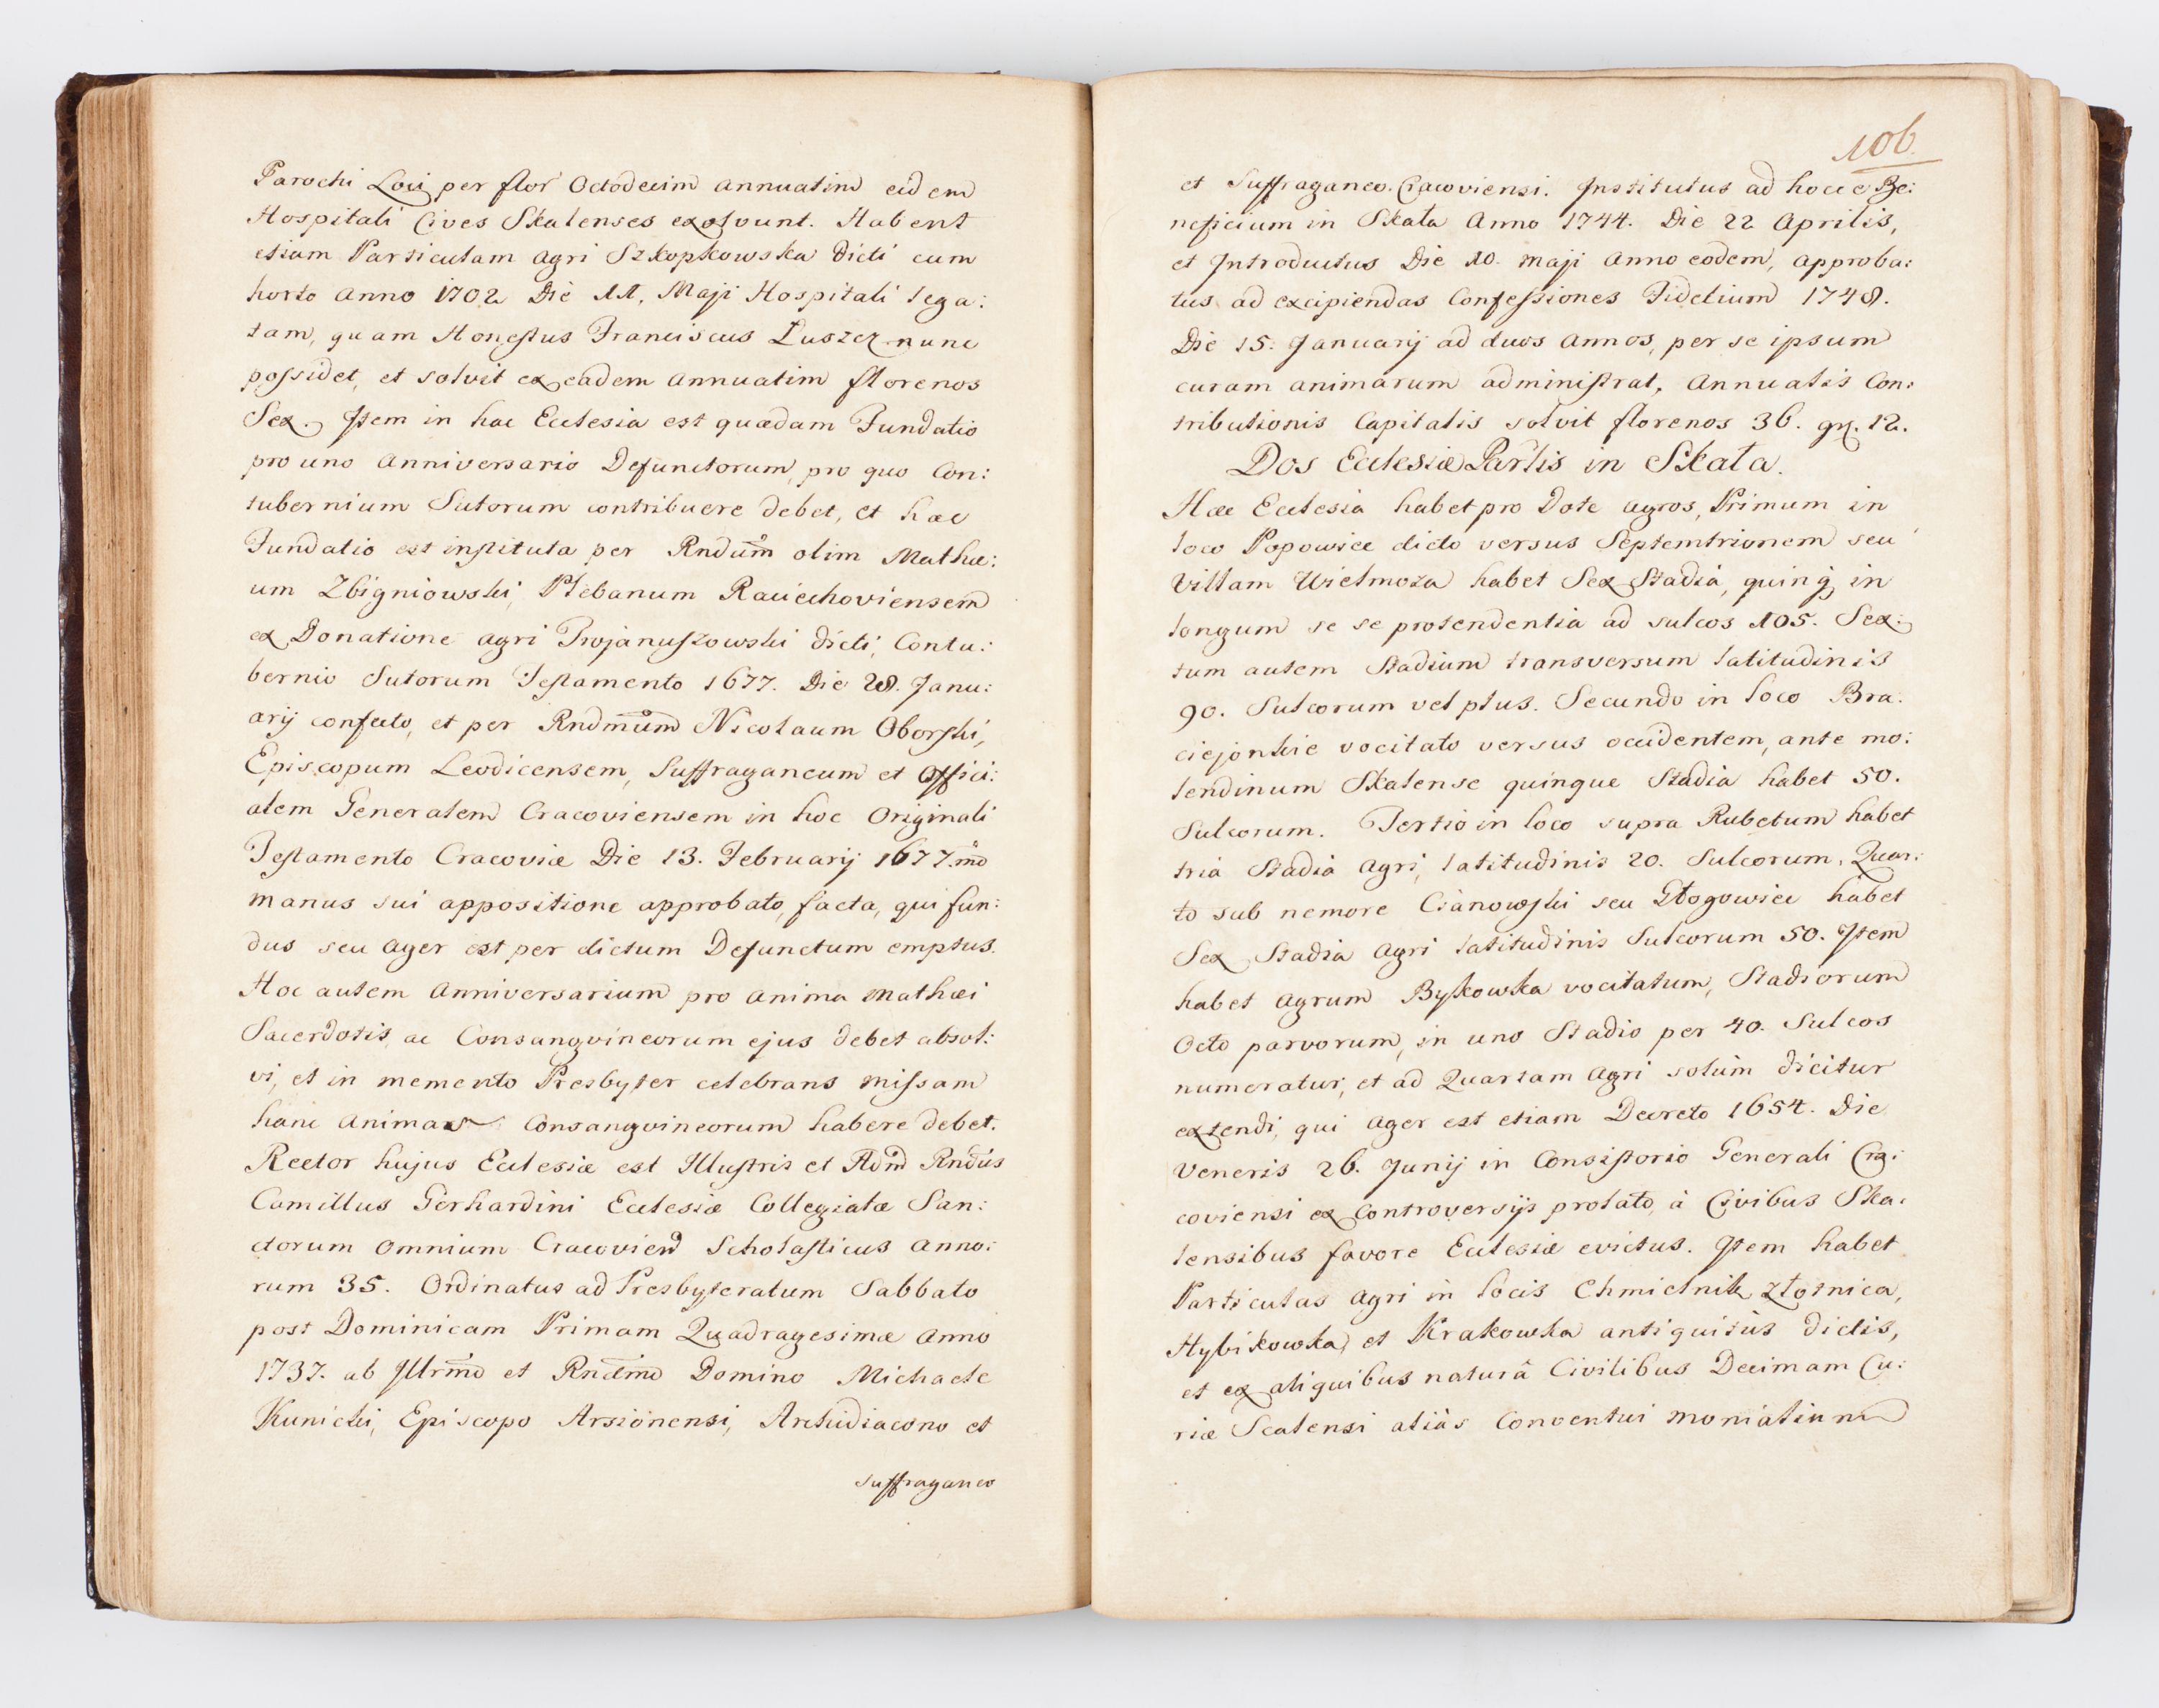 Parochi Loci per flor Octodecim annuatim eidem
Hospitali Cives Skalenses exolvunt. Habent
etiam Particulam agri Szkopkowska dicti cum
horto Anno 1702 Die 11. Maji Hospitali lega:
tam, quam Honestus Franciscus Łuszcz nunc
possidet, et solvit ex eadem annuatim florenos
Sex. Item in hac Ecclesia est quædam Fundatio
pro uno Anniversario Defunctorum, pro quo Con:
tubernium Sutorum contribuere debet, et hæc
Fundatio est instituta per Rndum olim Mathæ:
um Zbigniowski, Plebanum Raciechoviensem
ex Donatione agri Trojanuszowski dicti, Contu:
bernio Sutorum Testamento 1677. Die 28. Janu:
arij confecto, et per Rndmum Nicolaum Oborski,
Episcopum Leodicensem, Suffraganeum et Offici:
alem Generalem Cracoviensem in hoc Originali
Testamento Cracoviæ Die 13. Februarij 1677.mo
manus sui appositione approbato, facta, qui fun:
dus seu Ager est per dictum Defunctum emptus.
Hoc autem Anniversarium pro anima Mathæi
Sacerdotis, ac Consangvineorum ejus debet absol:
vi, et in memento Presbyter celebrans missam
hanc animas Consangvineorum habere debet.
Rector hujus Ecclesiæ est Illustris et Adm Rndus
Camillus Gerhardini Ecclesiæ Collegiatæ San:
ctorum Omnium Cracovien Scholasticus Anno:
rum 35. Ordinatus ad Presbyteratum Sabbato
post Dominicam Primam Quadragesimæ Anno
1737. ab Illrmo et Rndmo Domino Michaele
Kunicki, Episcopo Arsionensi, Archidiacono et
suffraganeo
106.
et Suffraganeo Cracoviensi. Institutus ad hocce Be:
neficium in Skała Anno 1744. Die 22 Aprilis,
et Introductus Die 10. Maji Anno eodem, approba:
tus ad excipiendas Confessiones Fidelium 1748.
Die 15. Januarij ad duos annos, per se ipsum
curam animarum administrat, Annualis Con:
tributionis Capitalis solvit florenos 36. gr. 12.
Dos Ecclesiæ Parlis in Skała.
Hæc Ecclesia habet pro Dote agros, Primum in
loco Popowice dicto versus Septemtrionem seu
Villam Wielmoza habet Sex Stadia, quinq, in
longum se se protendentia ad sulcos 105. Sex:
tum autem Stadium transversum latitudinis
90. Sulcorum vel plus. Secundo in loco Bra:
ciejonkie vocitato versus occidentem, ante mo:
lendinum Skalense quinque Stadia habet 50.
Sulcorum. Tertio in loco supra Rubetum habet
tria Stadia agri, latitudinis 20. Sulcorum. Quar:
to sub nemore Cianowski seu Głogowiec habet
Sex Stadia agri latitudinis Sulcorum 50. Item
habet agrum Bykowka vocitatum, Stadiorum
Octo parvorum, in uno Stadio per 40. Sulcos
numeratur, et ad Quartam agri solùm dicitur
extendi, qui ager est etiam Decreto 1654. Die
Veneris 26. Junij in Consistorio Generali Cra:
coviensi ex Controversijs prolato, à Civibus Ska:
lensibus favore Ecclesiæ evictus. Item habet
Particulas agri in locis Chmielnik, złotnica,
Hybikowka, et Krakowka antiquitùs dictis,
et ex aliquibus naturâ Civilibus Decimam Cu:
riæ Scalensi aliàs Conventui monialium